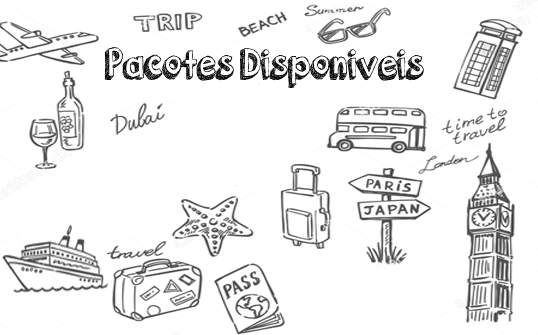 TRIP
BEACH
Summer
Pacotes Disponíveis
Dubai
time to
travel
London
PARIS
JAPAN
travel
PASS